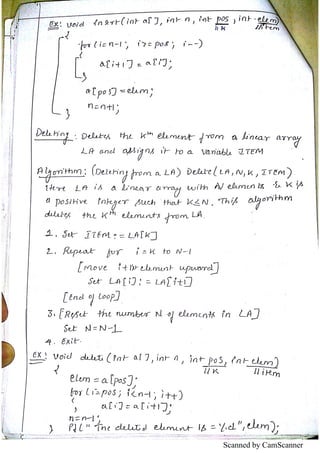 Ex: void insert(int a[], int n, int pos, int elem)
//K //item
{
for(i=n-1; i>=pos; i--)
{
a[i+1] = a[i];
}
a[pos] = elem;
n=n+1;
}
Deleting: Deletes the Kth element from a linear array
LA and assigns it to a variable ITEM
Algorithm: (Deleting from a LA) Delete(LA, N, K, ITEM)
Here LA is a linear array with N elements & K is
a positive integer such that K≤N. This algorithm
deletes the Kth elements from LA.
1. Set ITEM := LA[K]
2. Repeat for i = K to N-1
[move i+1th element upward]
Set LA[i] := LA[i+1]
[End of loop]
3. [Reset the number N of elements in LA]
Set N=N-1
4. Exit.
Ex: void delete(int a[], int n, int pos, int elem)
//K //item
{
elem = a[pos];
for(i=pos; i<n-1; i++)
{
a[i] = a[i+1];
}
n=n-1;
} Pf("The deleted element is = %d", elem);
Scanned by CamScanner